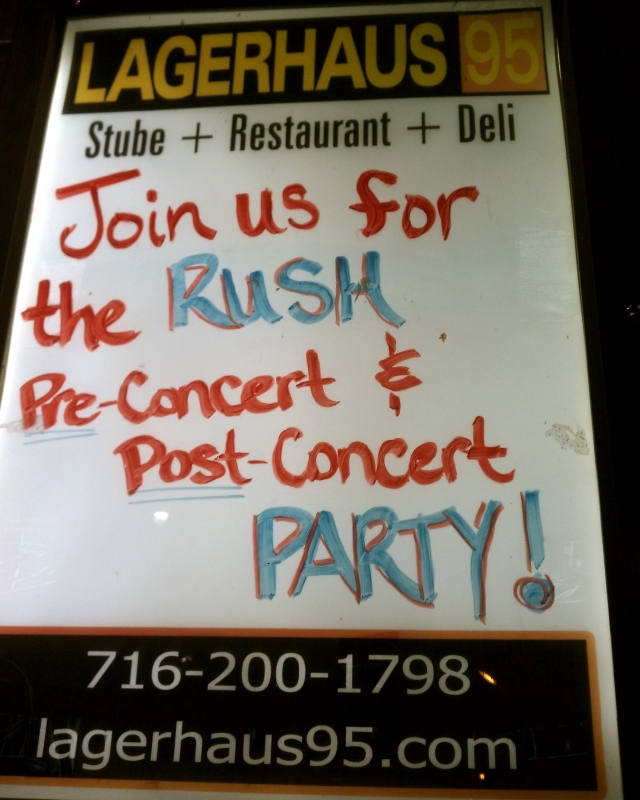 LAGERHAUS 95
Stube + Restaurant + Deli
Join us for
the RUSH
Pre-Concert &
Post-Concert
PARTY!
716-200-1798
lagerhaus95.com